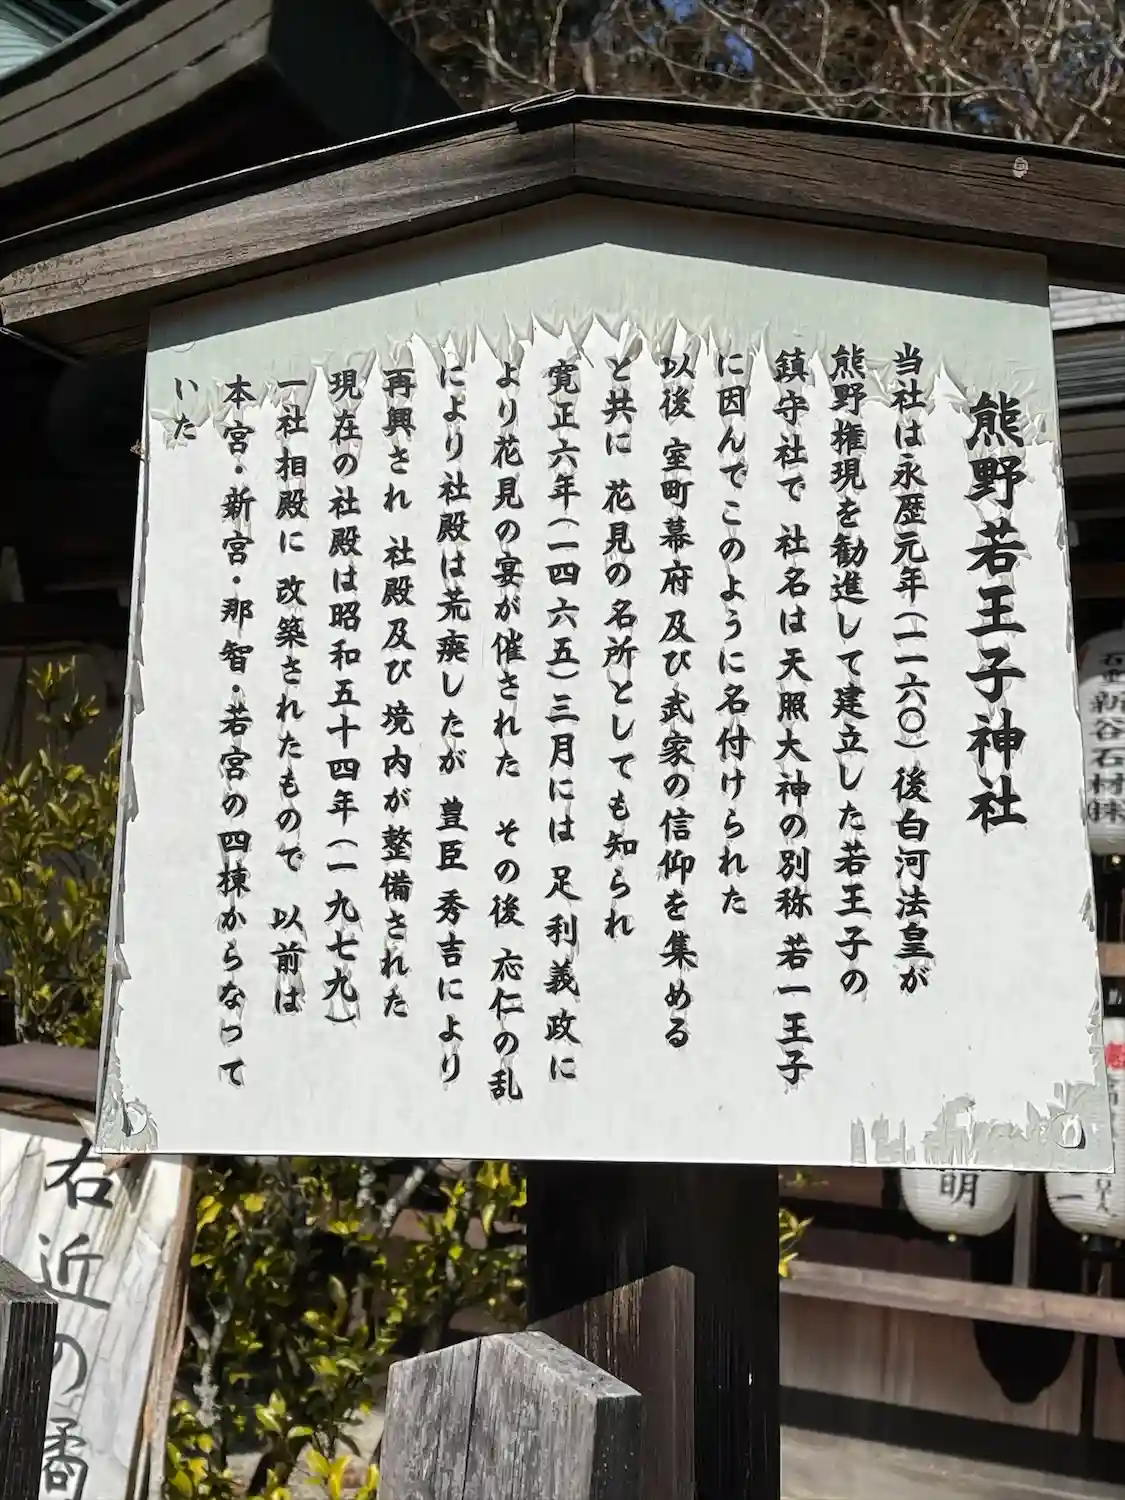 熊野若王子神社
当社は永歴元年(一一六〇)後白河法皇が
熊野権現を勧進して建立した若王子の
鎮守社で 社名は天照大神の別称 若一王子
に因んでこのように名付けられた
以後 室町幕府 及び武家の信仰を集める
と共に 花見の名所としても知られ
寛正六年(一四六五)三月には 足利義政に
より花見の宴が催された その後 応仁の乱
により社殿は荒廃したが 豊臣 秀吉により
再興され 社殿及び 境内が整備された
現在の社殿は昭和五十四年(一九七九)
一社相殿に 改築されたもので 以前は
本宮・新宮・那智・若宮の四棟からなって
いた
右近の橘
新谷石材株
明